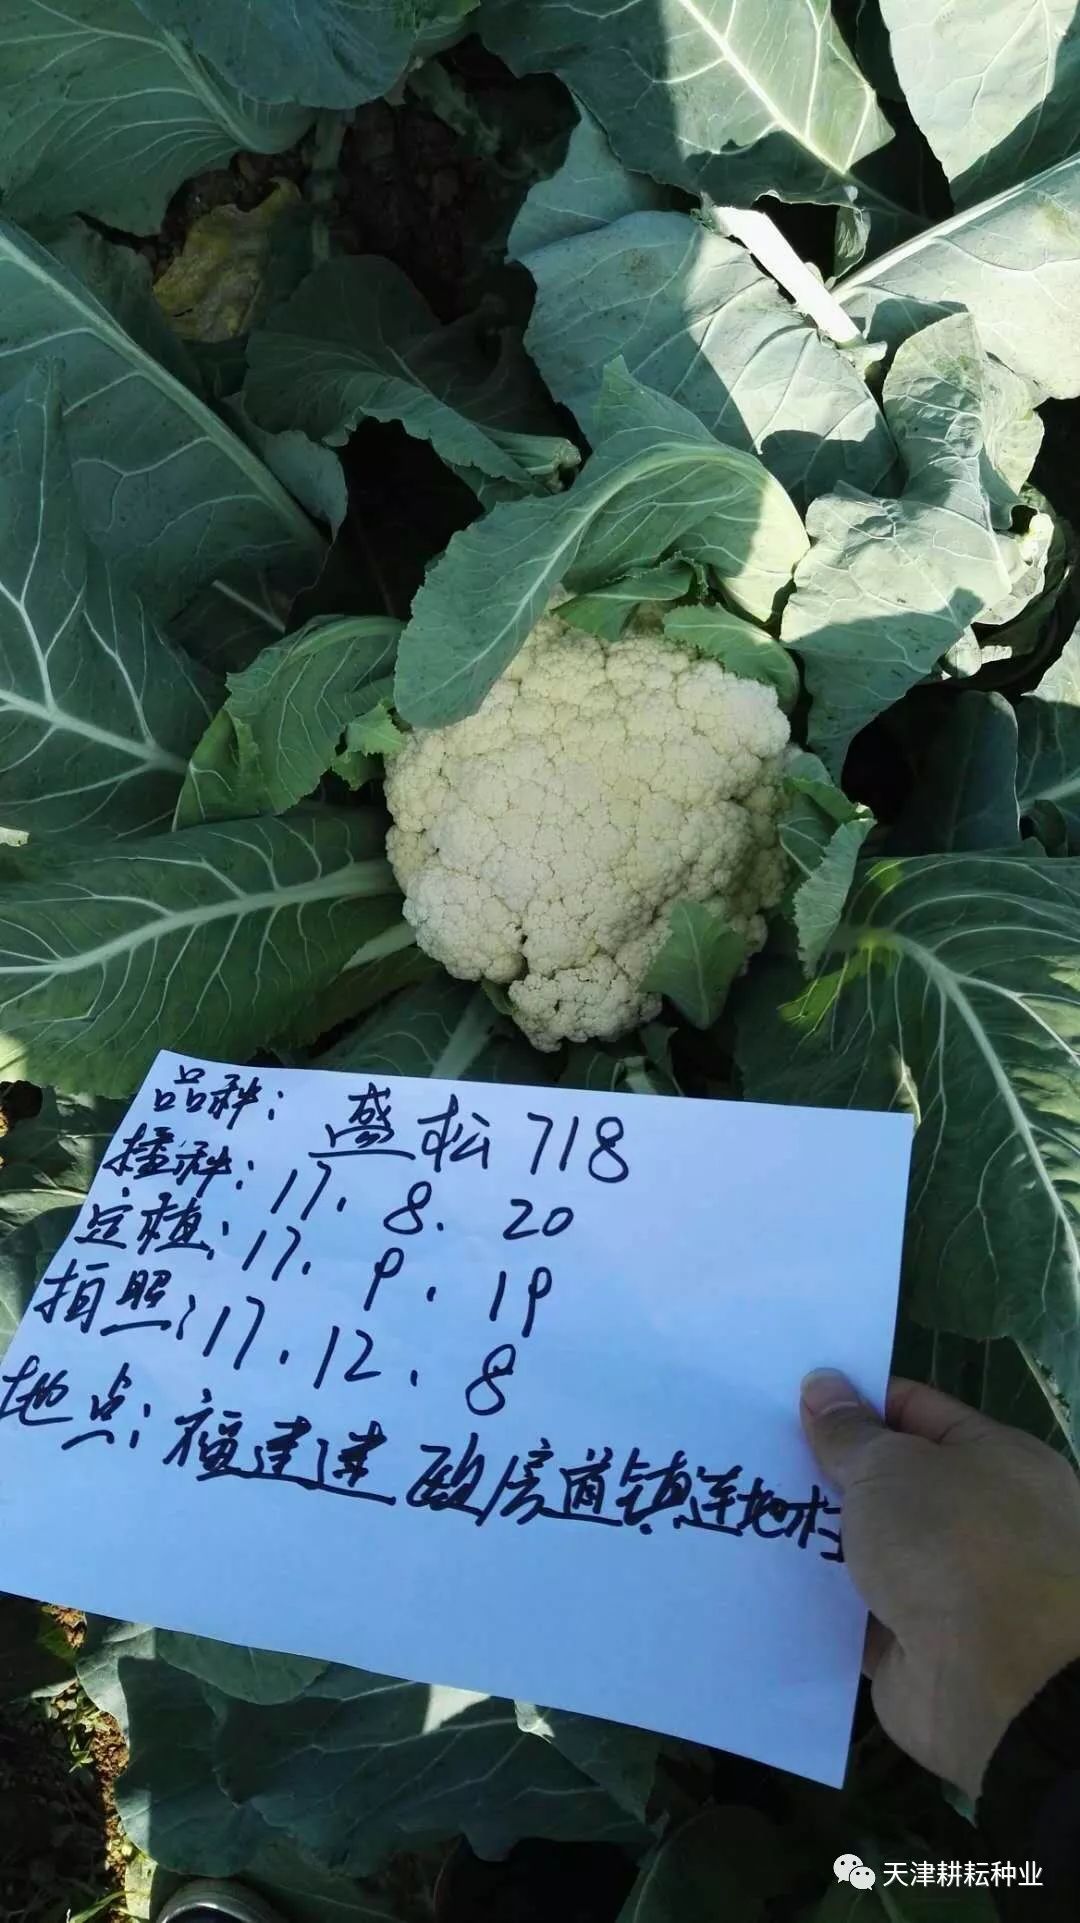 品种: 盛松718
播种: 17. 8. 20
定植: 17. 9. 19
拍照: 17. 12. 8
地点: 福建建瓯房道镇连地村
天津耕耘种业